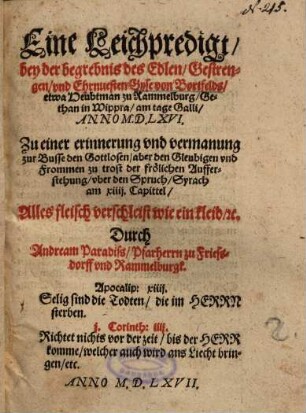 N. 215.
Eine Leichpredigt/
bey der begrebnis des Edlen/ Gestren-
gen/ vnd Ehrnuesten Gyse von Bortfelds/
etwa Heubtman zu Rammelburg/ Ge-
than in Wippra/ am tage Galli/
ANNO M. D. LXVI.
Zu einer erinnerung vnd vermanung
zur Busse den Gottlosen/ aber den Gleubigen vnd
Frommen zu trost der frölichen Auffer-
stehung/ vber den Spruch/ Syrach
am xiiij. Capittel/
Alles fleisch verschleist wie ein kleid/ ꝛc.
Durch
Andream Paradiss/ Pfarherrn zu Friess-
dorff vnd Rammelburgk.
Apocalip: xiiij.
Selig sind die Todten/ die im HERRN
sterben.
j. Corinth: iiij.
Richtet nichts vor der zeit/ bis der HERR
komme/ welcher auch wird ans Liecht brin-
gen/ etc.
ANNO M. D. LXVII.